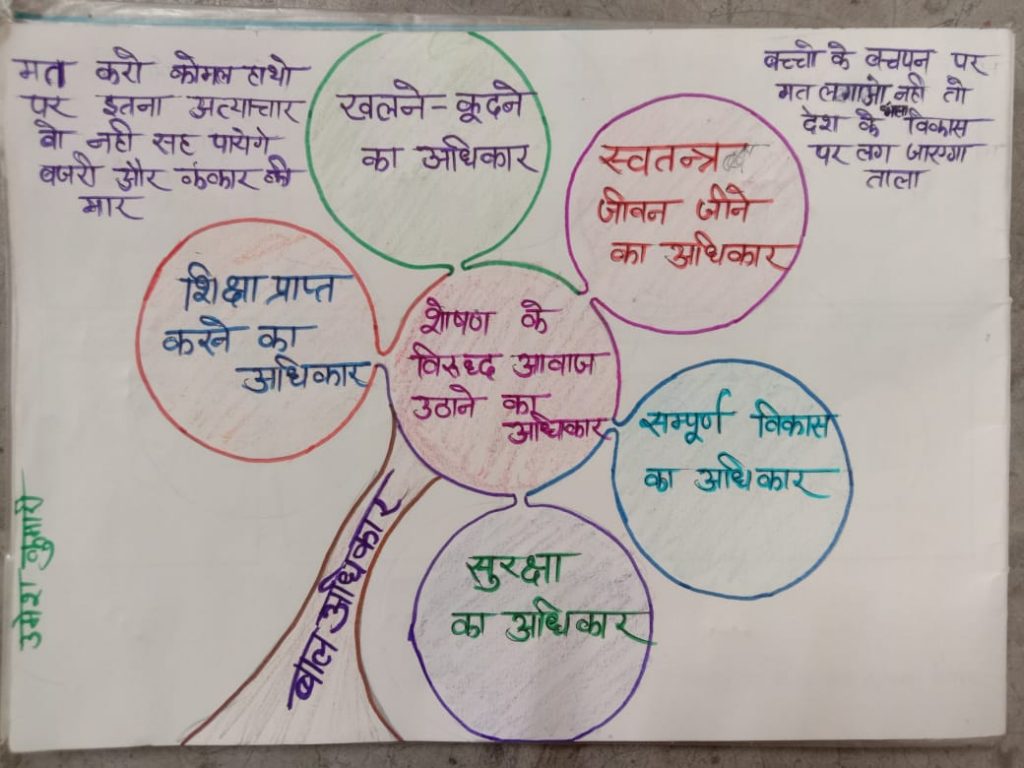 मत करो कोमल हाथो
पर इतना अत्याचार
वो नही सह पायेगे
बजरी और कंकार की
मार
खलने-कूदने
का अधिकार
बच्चो के बचपन पर
मत लगाओ नही तो
देश के विकास
पर लग जाएगा
ताला
स्वतन्त्र
जीवन जीने
का अधिकार
शिक्षा प्राप्त
करने का
अधिकार
शोषण के
विरुध्द आवाज
उठाने का
अधिकार
सम्पूर्ण विकास
का अधिकार
सुरक्षा
का अधिकार
बाल अधिकार
उमेश कुमारी